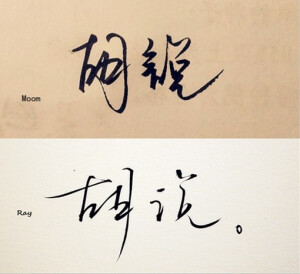 胡說
Moom
胡说。
Ray